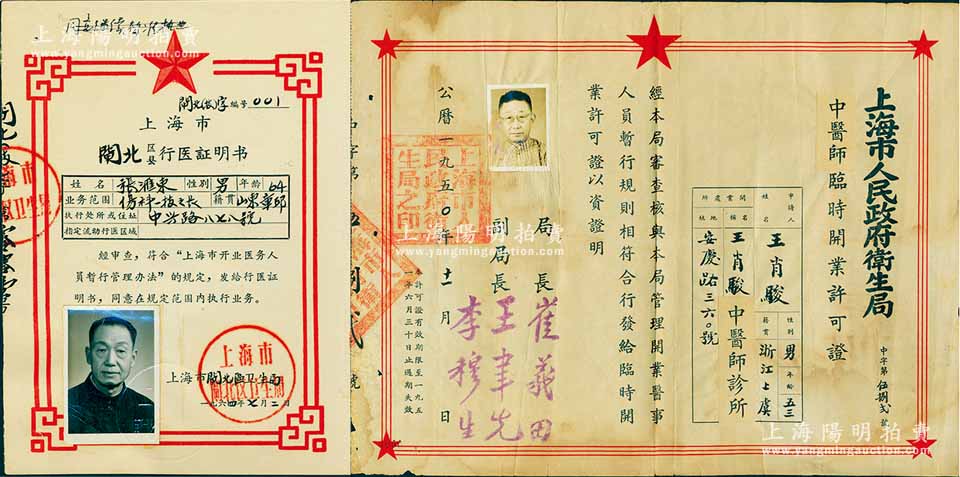 上海陽明拍賣
www.yangmingauction.com
閘北伤字编号001
上海市
閘北区县行医証明书
姓名 張滙東 性别 男 年龄 64
业务范围 伤科 籍貫 山東章邱
执行处所或住址 中兴路八七八號
指定流动行医区域
经审查，符合“上海市开业医务人
員暫行管理办法”的規定，发给行医証
明书，同意在規定范围内执行业务。
上海市閘北區卫生局
一九六四年七月二日
上海市
閘北区卫生局
上海市人民政府衛生局
中醫師臨時開業許可證
中字第伍捌弍號
申請人
姓名 王肖駿 性別 男 年齡 五三
籍貫 浙江上虞
開業處所
名稱 王肖駿中醫師診所
地址 安慶路三六〇號
經本局審查核與本局管理開業醫事
人員暫行規則相符合行發給臨時開
業許可證以資證明
局長 崔義田
副局長 王聿先
李穆生
公曆一九五〇年十一月 日
上海市人民政府衛生局之印
本許可證有效期限至一九五
一年六月三十日止過期失效
上海陽明拍賣
www.yangmingauction.com
上海陽明拍賣
yangmingauction.com